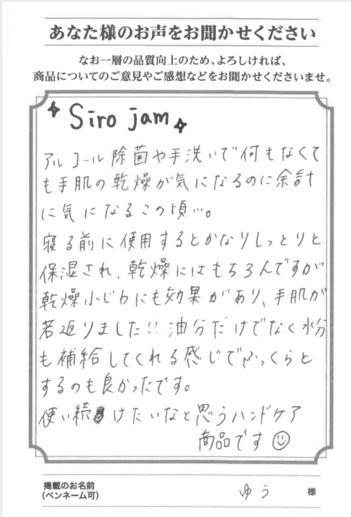 あなた様のお声をお聞かせください
なお一層の品質向上のため、よろしければ、
商品についてのご意見やご感想などをお聞かせくださいませ。
Siro jam
アルコール除菌や手洗いで何もなくて
も手肌の乾燥が気になるのに余計
に気になるこの頃…。
寝る前に使用するとかなりしっとりと
保湿され、乾燥にはもちろんですが
乾燥小じわにも効果があり、手肌が
若返りました!!油分だけでなく水分
も補給してくれる感じでふっくらと
するのも良かったです。
使い続けたいなと思うハンドケア
商品です☺
掲載のお名前
(ペンネーム可)
ゆう 様